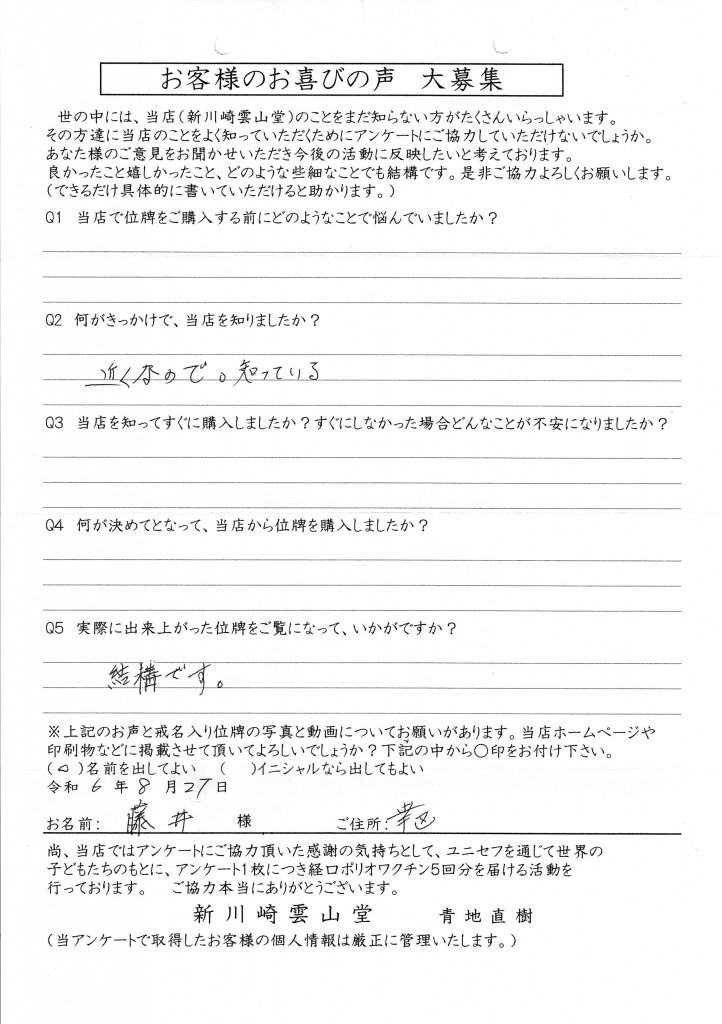 お客様のお喜びの声　大募集
世の中には、当店(新川崎雲山堂)のことをまだ知らない方がたくさんいらっしゃいます。
その方達に当店のことをよく知っていただくためにアンケートにご協力していただけないでしょうか。
あなた様のご意見をお聞かせいただき今後の活動に反映したいと考えております。
良かったこと嬉しかったこと、どのような些細なことでも結構です。是非ご協力よろしくお願いします。
(できるだけ具体的に書いていただけると助かります。)
Q1　当店で位牌をご購入する前にどのようなことで悩んでいましたか？
Q2　何がきっかけで、当店を知りましたか？
近くなので。知っている
Q3　当店を知ってすぐに購入しましたか？すぐにしなかった場合どんなことが不安になりましたか？
Q4　何が決めてとなって、当店から位牌を購入しましたか？
Q5　実際に出来上がった位牌をご覧になって、いかがですか？
結構です。
※上記のお声と戒名入り位牌の写真と動画についてお願いがあります。当店ホームページや
印刷物などに掲載させて頂いてよろしいでしょうか？下記の中から〇印をお付け下さい。
(○)名前を出してよい　(　)イニシャルなら出してもよい
令和 6 年 8 月 27 日
お名前：　藤井　様　ご住所：幸区
尚、当店ではアンケートにご協力頂いた感謝の気持ちとして、ユニセフを通じて世界の
子どもたちのもとに、アンケート1枚につき経口ポリオワクチン5回分を届ける活動を
行っております。　ご協力本当にありがとうございます。
新川崎雲山堂　青地直樹
(当アンケートで取得したお客様の個人情報は厳正に管理いたします。)